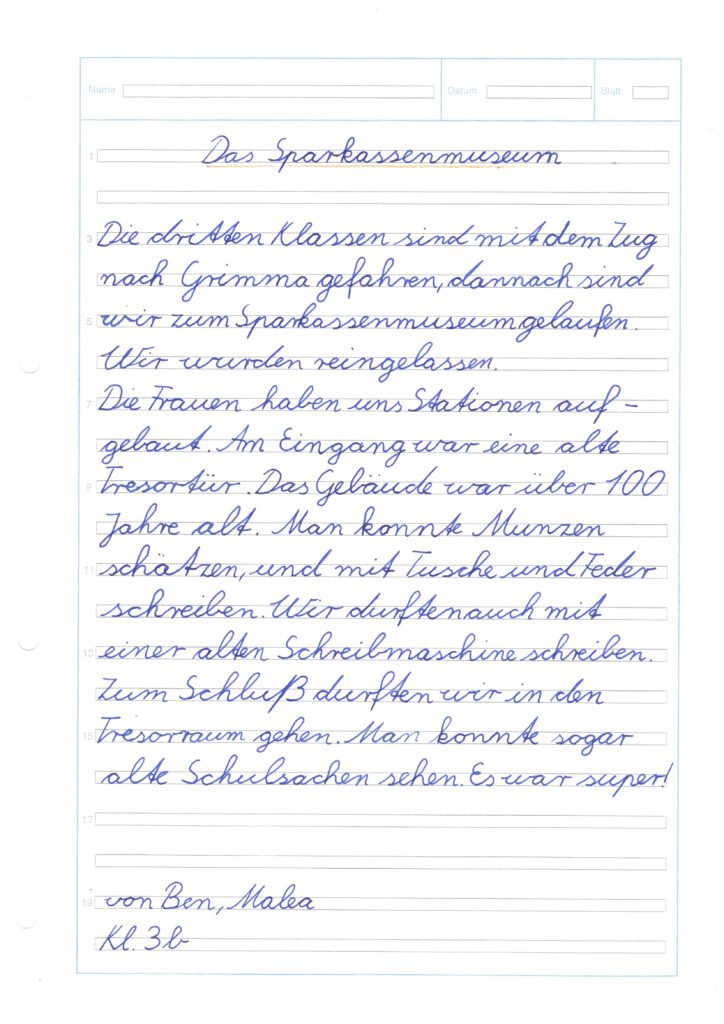 Name Datum Blatt
1 Das Sparkassenmuseum
3 Die dritten Klassen sind mit dem Zug
nach Grimma gefahren, dannach sind
5 wir zum Sparkassenmuseum gelaufen.
Wir wurden reingelassen.
7 Die Frauen haben uns Stationen auf-
gebaut. Am Eingang war eine alte
9 Tresortür. Das Gebäude war über 100
Jahre alt. Man konnte Munzen
11 schätzen, und mit Tusche und Feder
schreiben. Wir durften auch mit
13 einer alten Schreibmaschine schreiben.
Zum Schluß durften wir in den
15 Tresorraum gehen. Man konnte sogar
alte Schulsachen sehen. Es war super!
17
19 von Ben, Malea
Kl. 3b